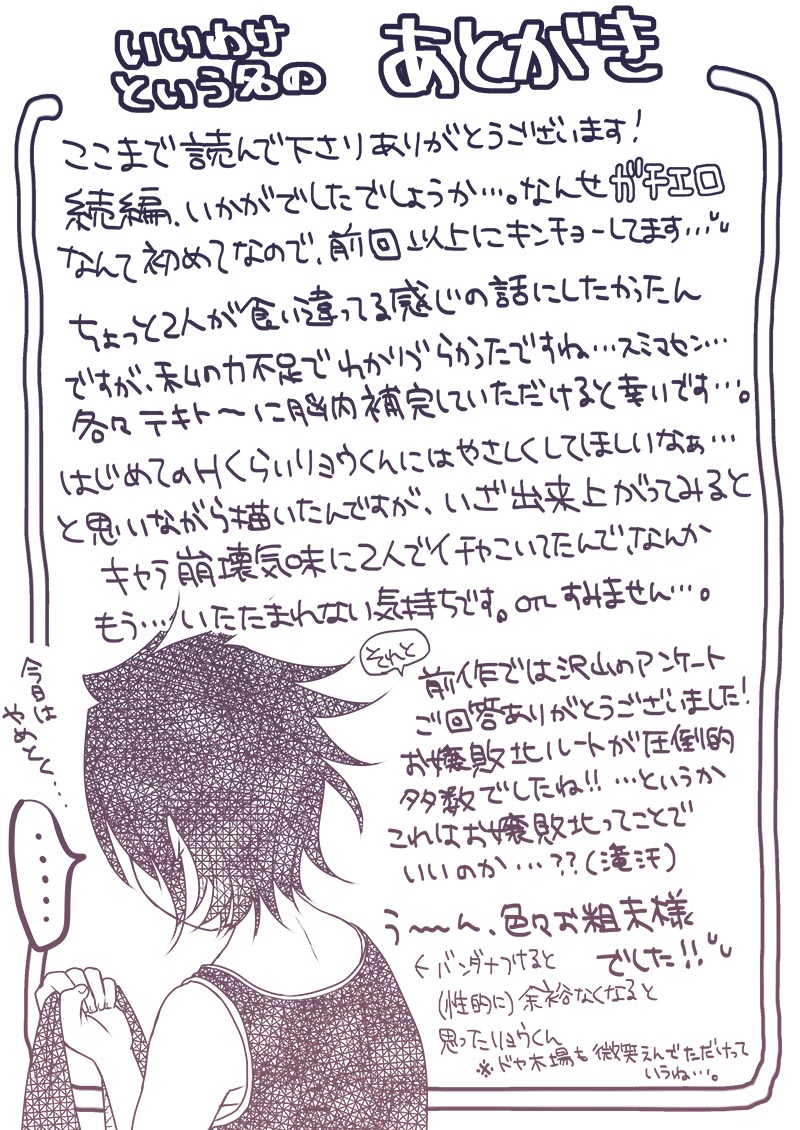 いいわけ
という名の
あとがき
ここまで読んで下さりありがとうございます!
続編、いかがでしたでしょうか…。なんせガチエロ
なんて初めてなので、前回以上にキンチョーしてます…
ちょっと2人が食い違ってる感じの話にしたかったん
ですが、私の力不足でわかりづらかったですね…スミマセン…
各々テキトーに脳内補完していただけると幸いです…。
はじめてのHくらいリョウくんにはやさしくしてほしいなぁ…
と思いながら描いたんですが、いざ出来上がってみると
キャラ崩壊気味に2人でイチャこいてたんで、なんか
もう…いたたまれない気持ちです。orz すみません…。
それと
前作では沢山のアンケート
ご回答ありがとうございました!
お嬢敗北ルートが圧倒的
多数でしたね!! …というか
これはお嬢敗北ってことで
いいのか…??(滝汗)
う〜ん、色々お粗末様
でした!!
←バンダナつけると
(性的に)余裕なくなると
思ったリョウくん
※ドヤ木場も微笑えんでただけって
いうね…。
今日は
やめとく…
・・・・・